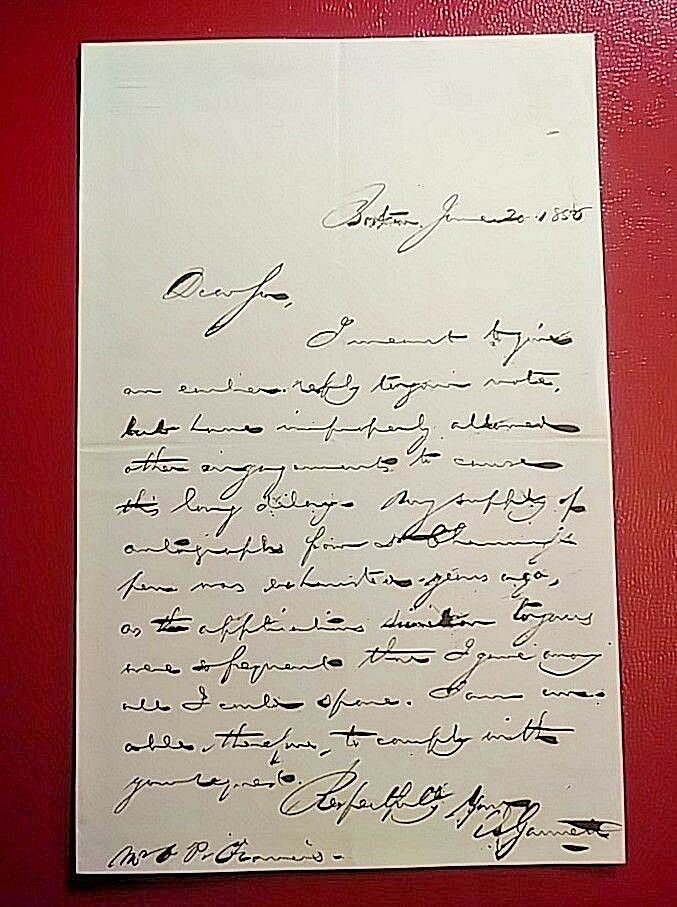 Boston, June 20. 1855
Dear Sir,
I meant to give
an earlier reply to your note,
but have improperly allowed
other engagements to cause
this long delay. My supply of
autographs from Dr Channing's
pen was exhausted years ago,
as the applications similar to yours
were so frequent that I gave away
all I could spare. I am un-
able, therefore, to comply with
your request.
Respectfully Yours
Gannett
Mr